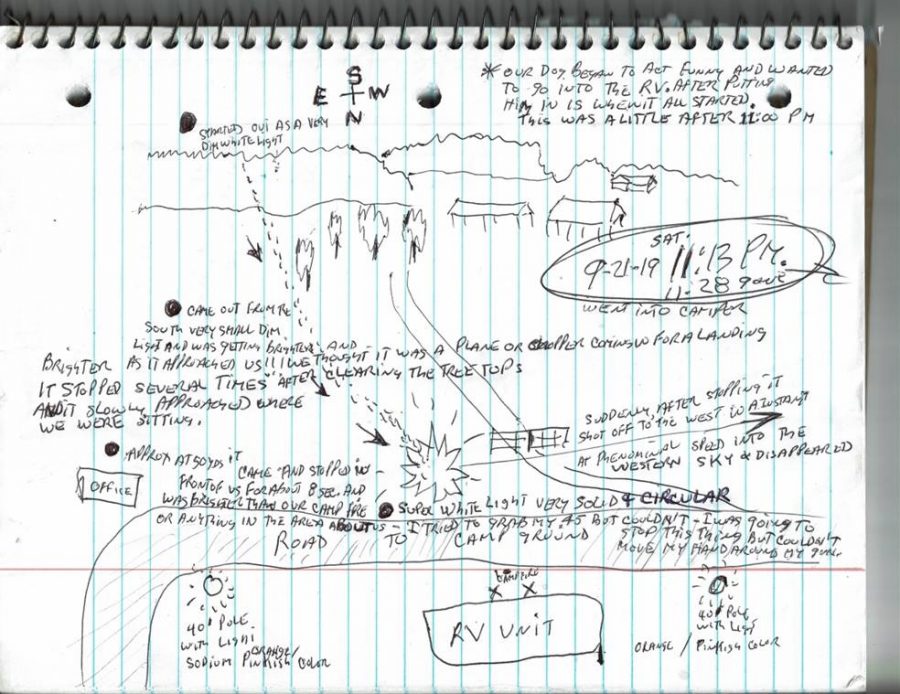 * OUR DOG BEGAN TO ACT FUNNY AND WANTED
TO GO INTO THE RV. AFTER PUTTING
HIM IN IS WHEN IT ALL STARTED.
THIS WAS A LITTLE AFTER 11:00 PM
S
E W
N
STARTED OUT AS A VERY
DIM WHITE LIGHT
SAT.
9-21-19 11:13 PM.
11:28 gone
WENT INTO CAMPER
CAME OUT FROM THE
SOUTH VERY SMALL DIM
LIGHT AND WAS GETTING BRIGHTER AND
BRIGHTER AS IT APPROACHED US!!! WE THOUGHT IT WAS A PLANE OR CHOPPER COMING IN FOR A LANDING
IT STOPPED SEVERAL TIMES AFTER CLEARING THE TREE TOPS
AND IT SLOWLY APPROACHED WHERE
WE WERE SITTING.
SUDDENLY, AFTER STOPPING IT
SHOT OFF TO THE WEST IN A INSTANT
AT PHENOMINAL SPEED INTO THE
WESTERN SKY & DISAPPEARED
APPROX AT 50 YDS IT
CAME AND STOPPED IN
FRONT OF US FOR ABOUT 8 SEC. AND
WAS BRIGHTER THAN OUR CAMP FIRE
OR ANYTHING IN THE AREA ABOUT US - I TRIED TO GRAB MY 45 BUT COULDN'T - I WAS GOING TO
STOP THIS THING BUT COULDN'T
MOVE MY HAND AROUND MY
SUPER WHITE LIGHT VERY SOLID & CIRCULAR
OFFICE
ROAD TO CAMP GROUND
CAMPFIRE
X X
RV UNIT
40' POLE
WITH LIGHT
ORANGE/
SODIUM PINKISH COLOR
40' POLE
WITH LIGHT
ORANGE / PINKISH COLOR